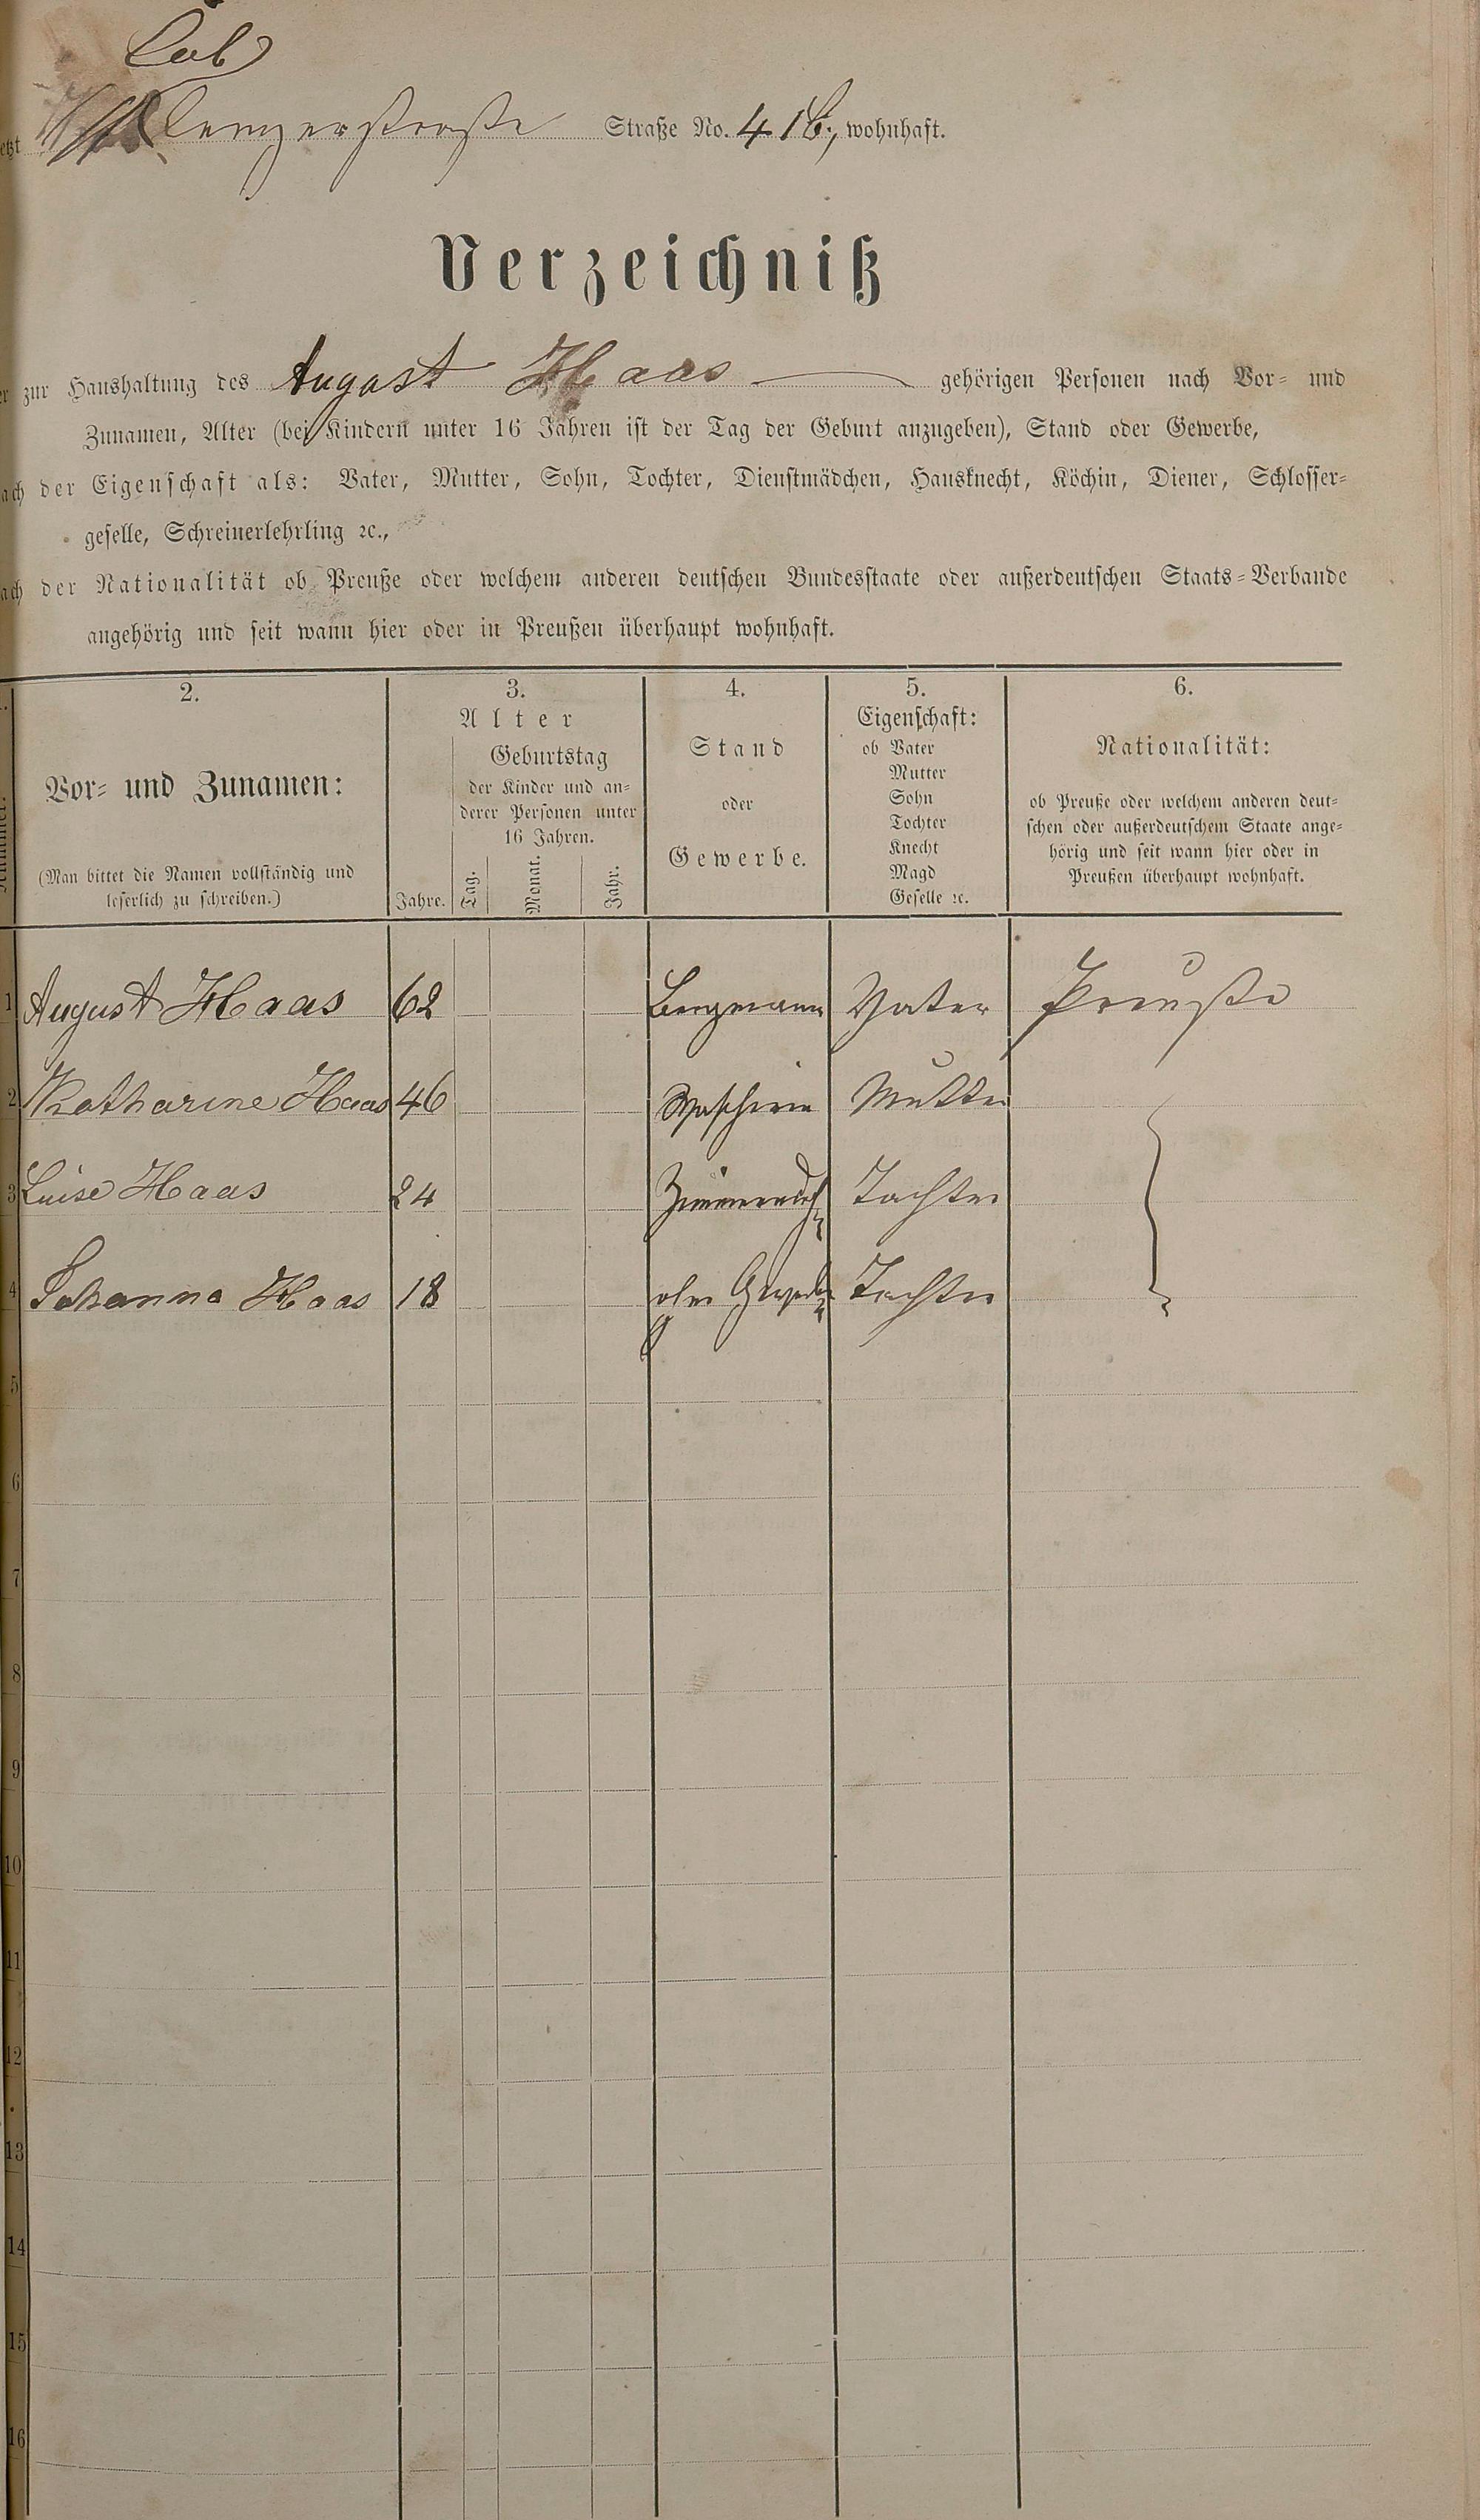 Cob
lenzerstraße Straße No. 41b, wohnhaft.
Verzeichniß
zur Haushaltung des August Haas gehörigen Personen nach Vor- und
Zunamen, Alter (bei Kindern unter 16 Jahren ist der Tag der Geburt anzugeben), Stand oder Gewerbe,
der Eigenschaft als: Vater, Mutter, Sohn, Tochter, Dienstmädchen, Hausknecht, Köchin, Diener, Schlosser-
geselle, Schreinerlehrling ꝛc.,
der Nationalität ob Preuße oder welchem anderen deutschen Bundesstaate oder außerdeutschen Staats-Verbande
angehörig und seit wann hier oder in Preußen überhaupt wohnhaft.
2.
Vor- und Zunamen:
(Man bittet die Namen vollständig und
leserlich zu schreiben.)
3.
Alter
Jahre.
Geburtstag
der Kinder und an-
derer Personen unter
16 Jahren.
Tag.
Monat.
Jahr.
4.
Stand
oder
Gewerbe.
5.
Eigenschaft:
ob Vater
Mutter
Sohn
Tochter
Knecht
Magd
Geselle ꝛc.
6.
Nationalität:
ob Preuße oder welchem anderen deut-
schen oder außerdeutschem Staate ange-
hörig und seit wann hier oder in
Preußen überhaupt wohnhaft.
1 August Haas 62 Bergmann Vater Preuße
2 Katharine Haas 46 Mutter
3 Luise Haas 24 Tochter
4 Johanna Haas 18 ohne Gewerbe Tochter
5
6
7
8
9
10
11
12
13
14
15
16